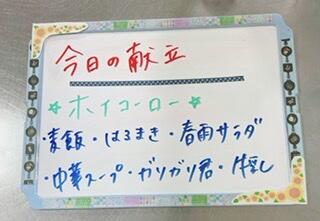 今日の献立
☆ホイコーロー☆
・麦飯・はるまき・春雨サラダ
・中華スープ・ガリガリ君・牛乳